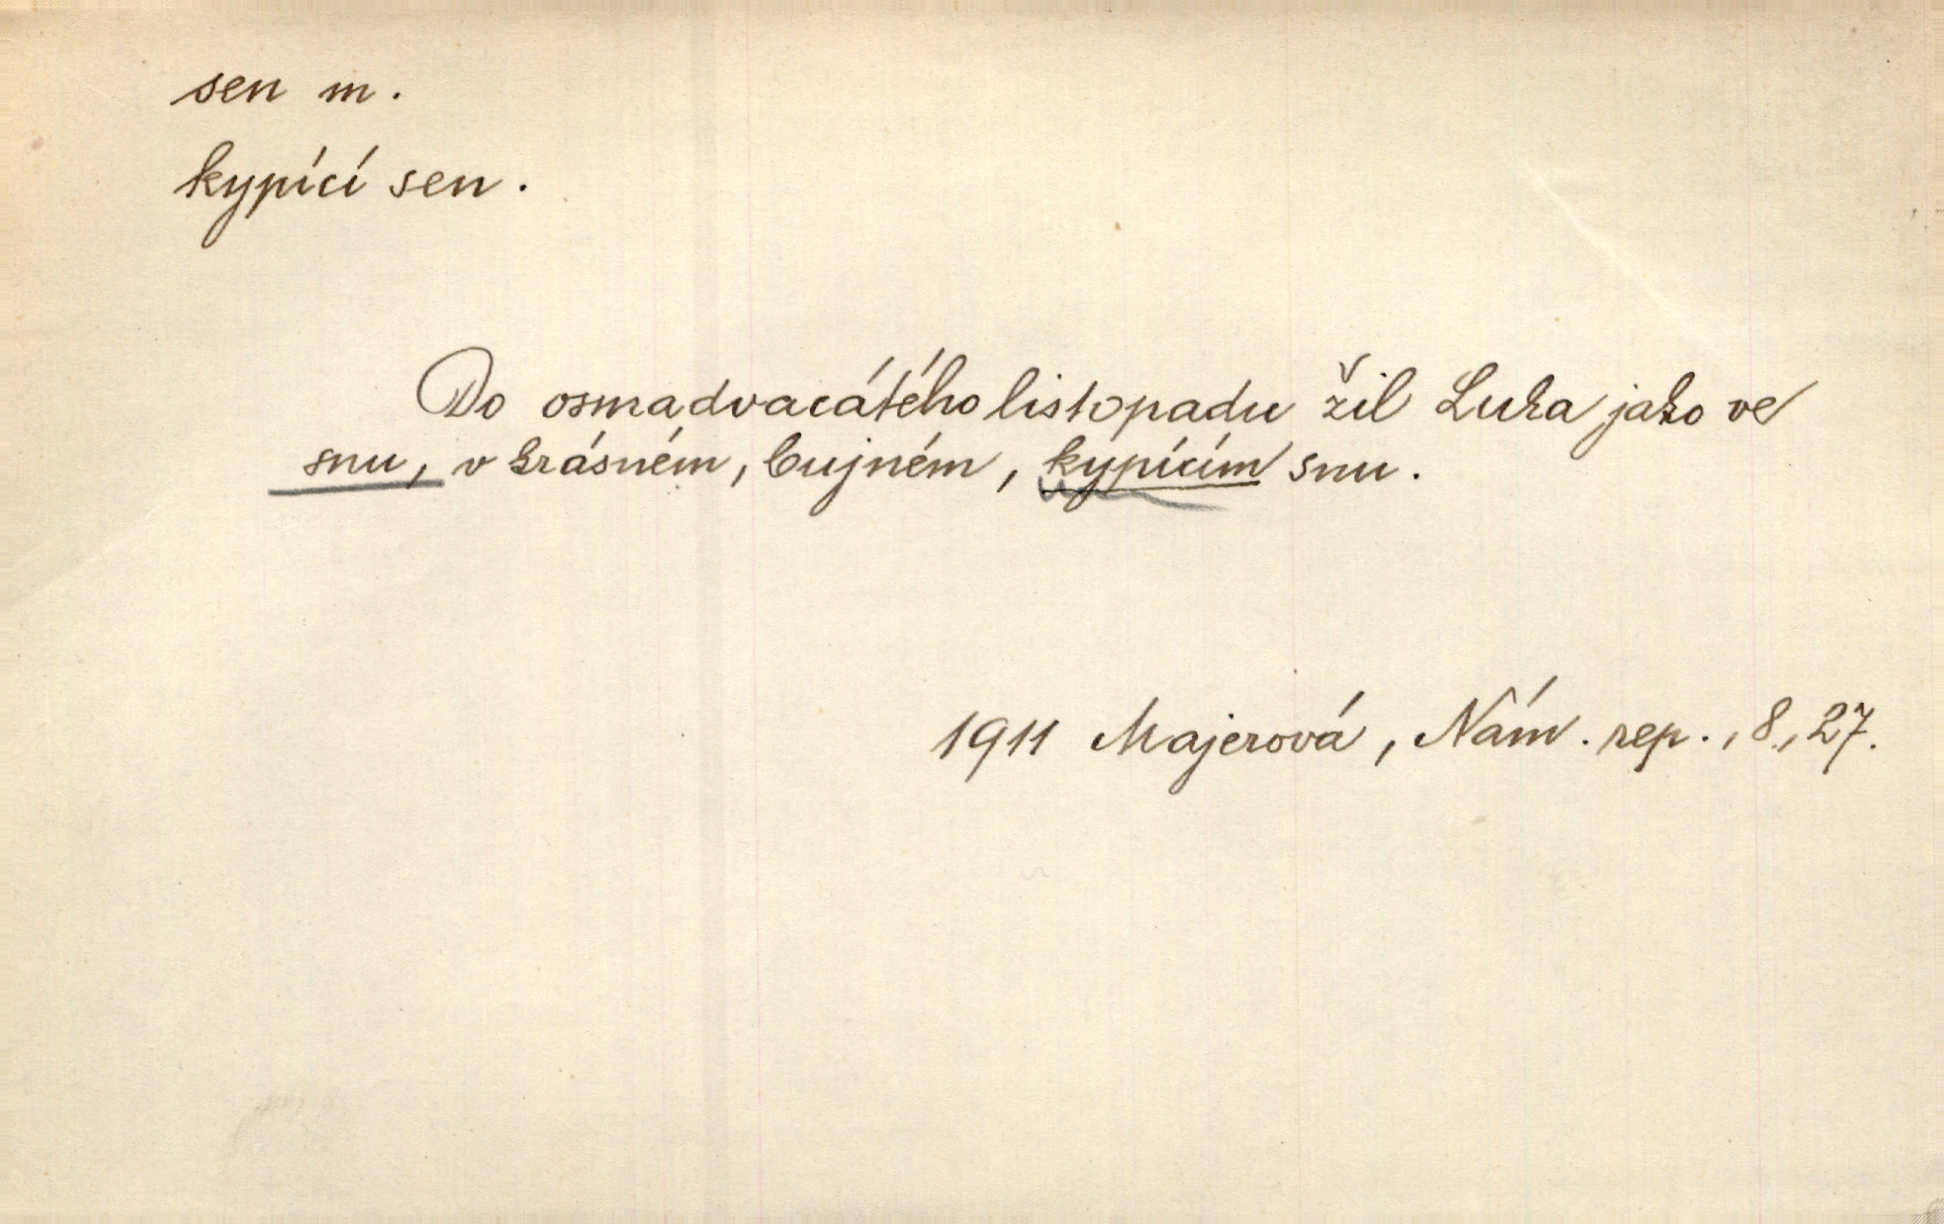 sen m.
kypící sen.
Do osmadvacátého listopadu žil Luka jako ve
snu, v krásném, bujném, kypícím snu.
1911 Majerová, Nám. rep., 8., 27.